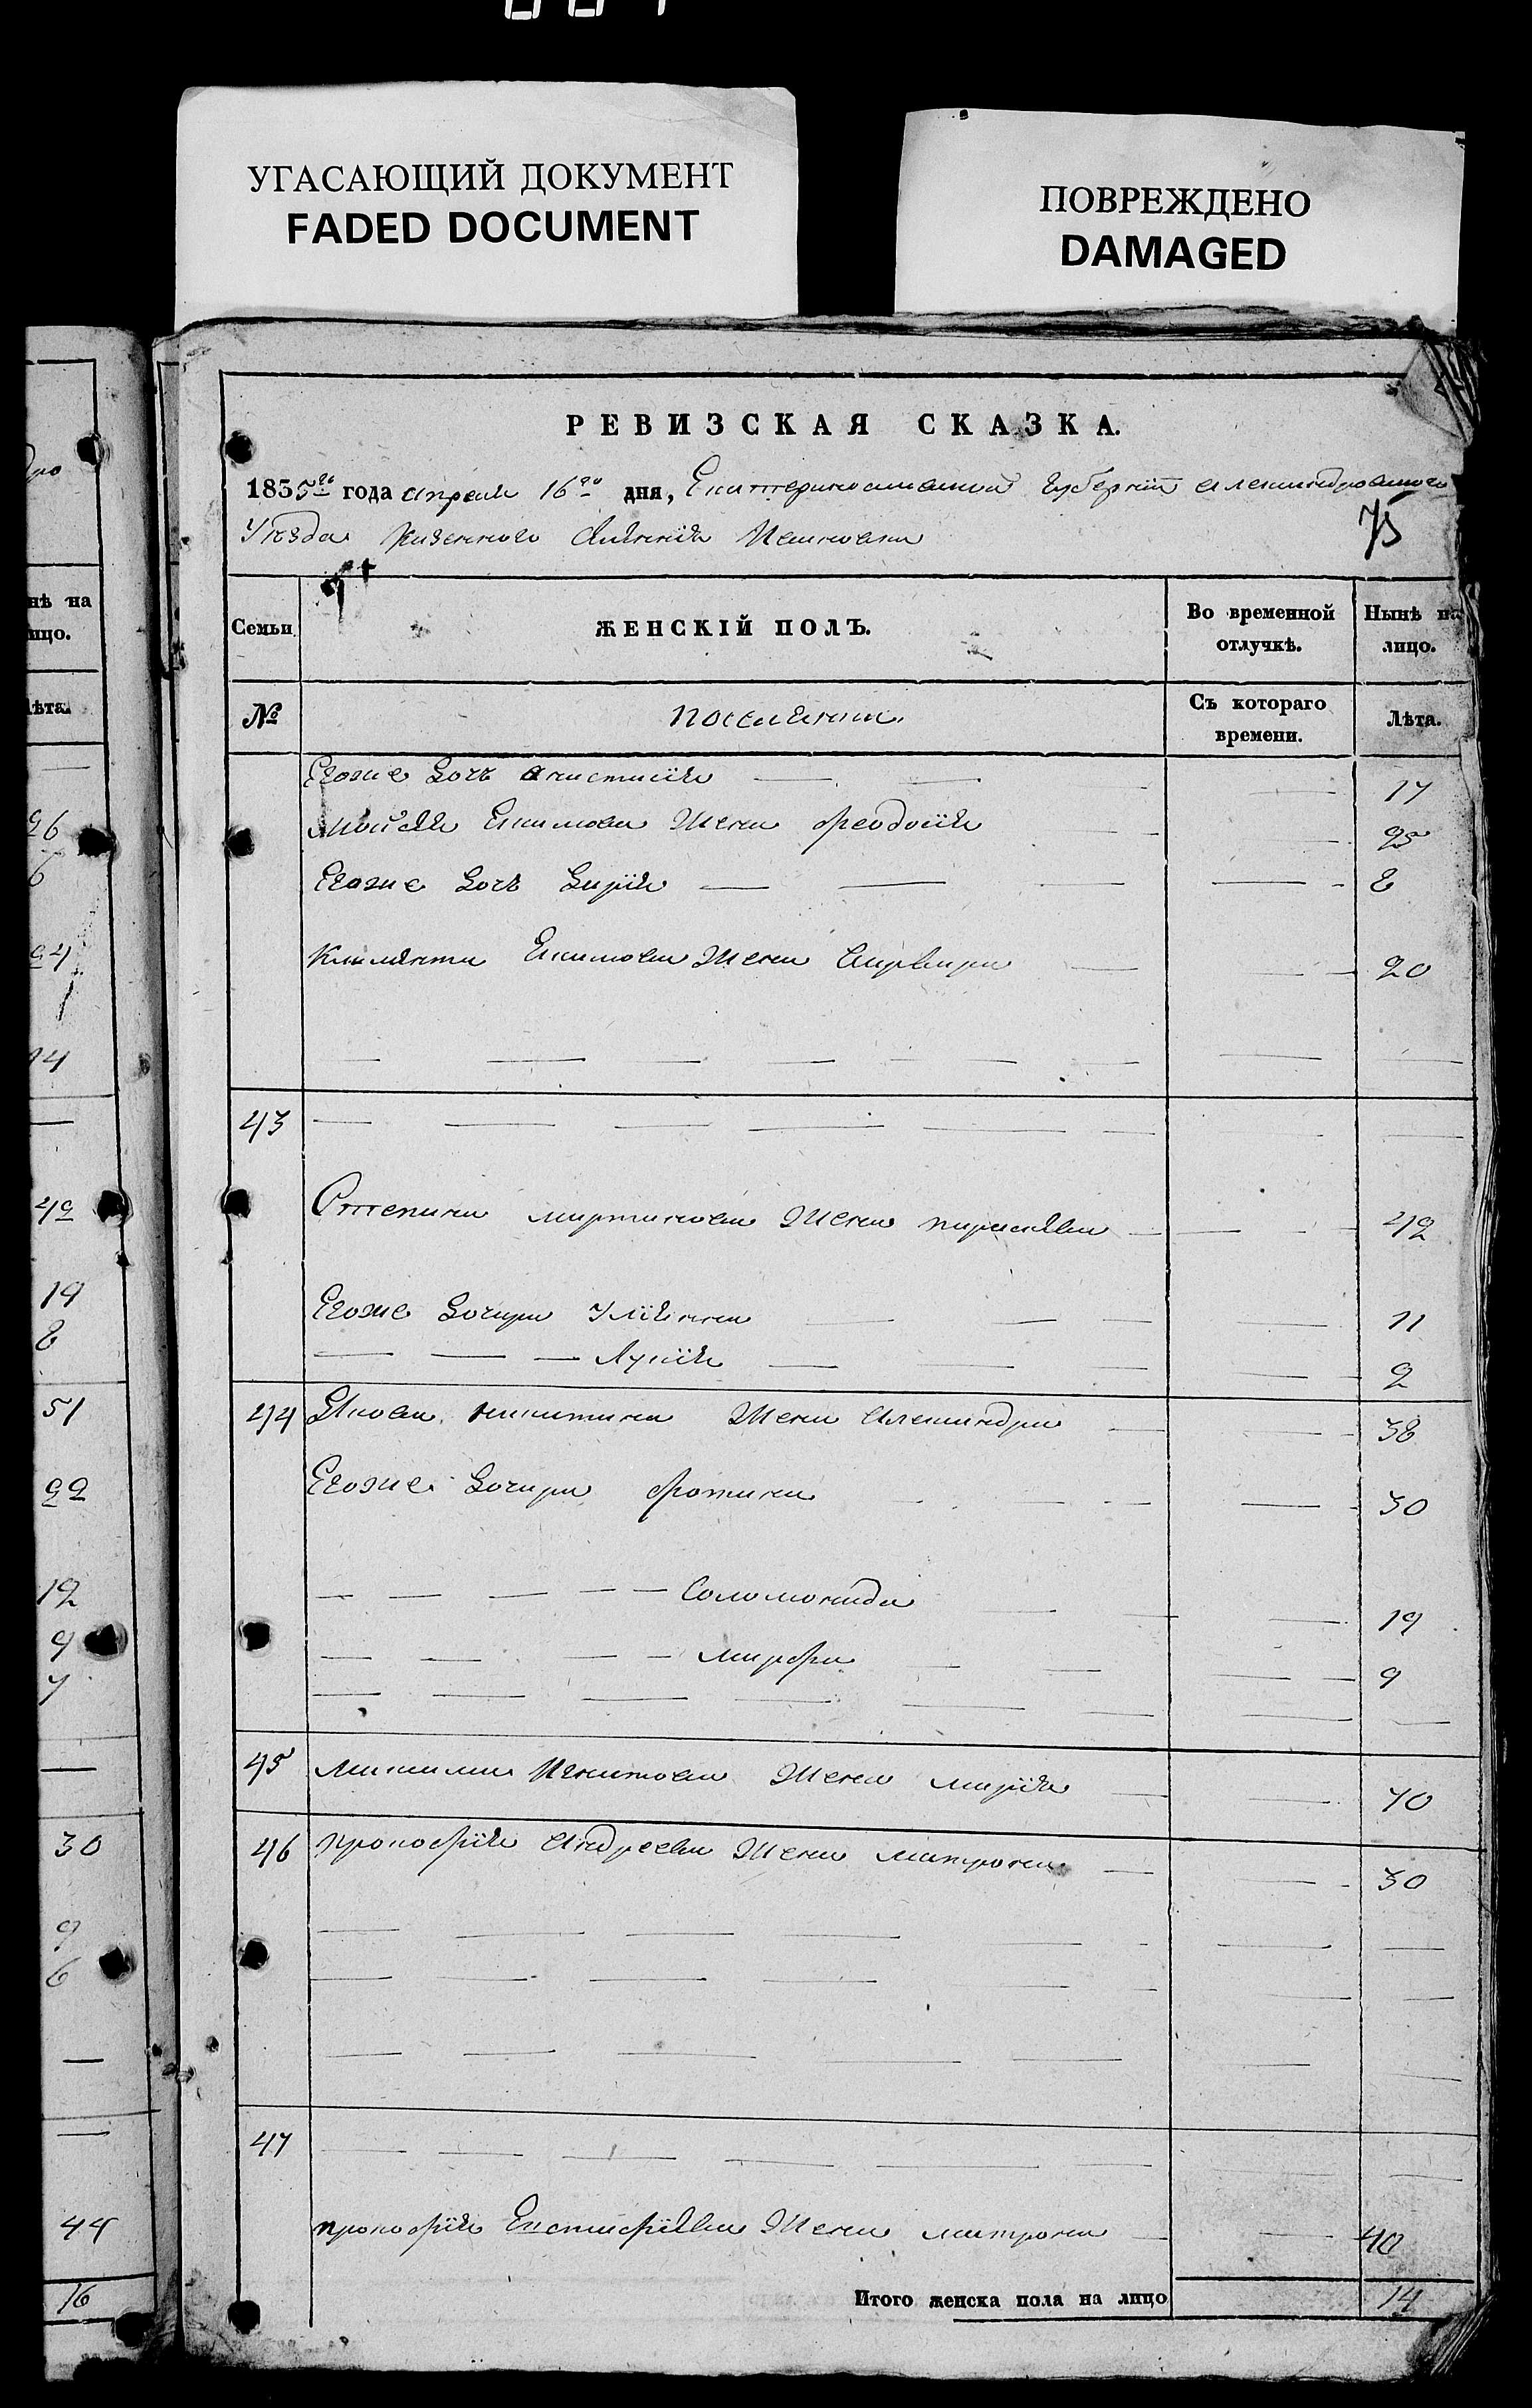 УГАСАЮЩИЙ ДОКУМЕНТ
FADED DOCUMENT
ПОВРЕЖДЕНО
DAMAGED
РЕВИЗСКАЯ СКАЗКА.
1835го года апреля 16го дня, Екатеринославской губернии Александровского
Уезда казенного селения
75
Семьи
ЖЕНСКІЙ ПОЛЪ.
Во временной отлучкѣ.
Нынѣ на лицо.
№
поселяни
Съ котораго времени.
Лѣта.
Егоже дочь Анастасія 17
Мойсея Екимова жена Феодосія 25
Егоже дочь Дарія 8
Климента Екимова жена Варвара 20
43
Степана Мартинова жена Параскева 42
Егоже дочери Уліянна 11
Лукія 2
44 Якова Никитина жена Александра 38
Егоже дочери Фотина 30
Соломонида 19
Марфа 9
45 Максима Игнатова жена Марія 70
46 Прокофія Андреева жена Матрона 30
47
Прокофія Евстафіева жена Матрона 40
Итого женска пола на лицо 14
нѣ на
ицо.
лѣта.
26
6
24
1
14
42
19
8
51
22
12
9
7
30
9
6
44
16